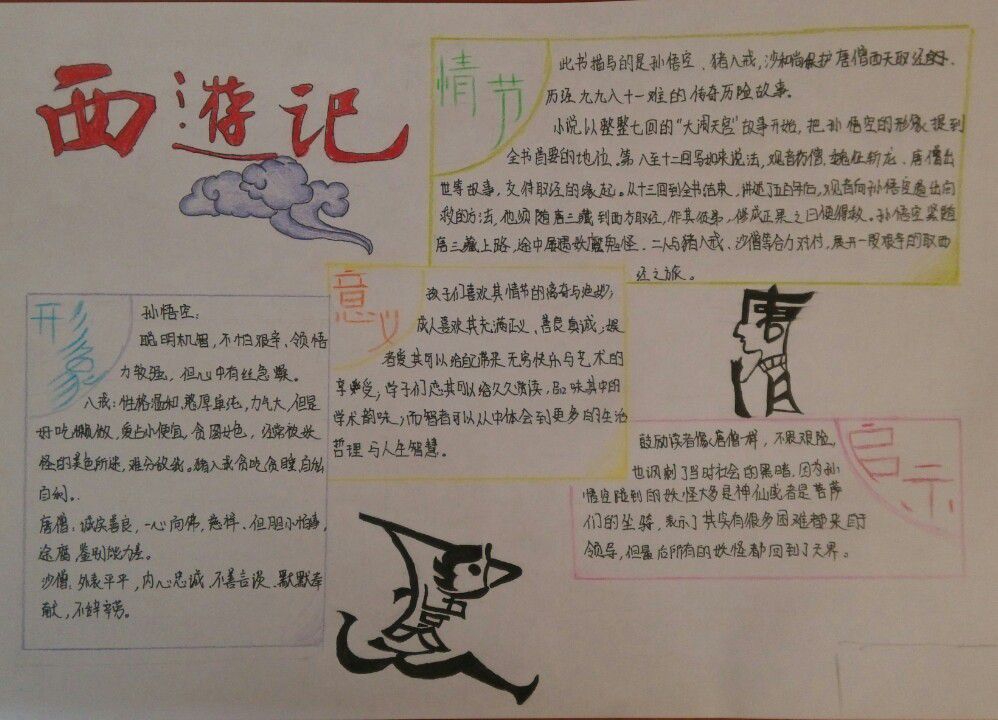 西遊记
情节
此书描写的是孙悟空、猪八戒,沙和尚保护唐僧西天取经的、
历经九九八十一难的传奇历险故事。
小说以整整七回的“大闹天宫”故事开始,把孙悟空的形象提到
全书首要的地位。第八至十二回写如来说法,观音访僧,魏征斩龙、唐僧出
世等故事,交待取经的缘起。从十三回到全书结束,讲述了五百年后,观音向孙悟空道出向
救的方法,他须随唐三藏到西方取经,作其徒弟,修成正果之日便得救。孙悟空紧随
唐三藏上路,途中屡遇妖魔鬼怪,二人与猪八戒、沙僧等合力对付,展开一段艰辛的取西
经之旅。
意义
孩子们喜欢其情节的离奇与绝妙;
成人喜欢其充满正义、善良真诚;
者爱其可以给自己带来无穷快乐与艺术的
享受;学子们恋其可以给久久演读,品味其中的
学术韵味;而智者可以从中体会到更多的生活
哲理与人生智慧。
形象
孙悟空:
聪明机智,不怕艰辛、领悟
力较强,但心中有些急躁。
八戒:性格温和,憨厚单纯,力气大,但是
好吃懒做,爱占小便宜,贪图女色,经常被妖
怪的美色所迷,难分敌我。猪八戒贪吃贪睡自私
自利。
唐僧:诚实善良,一心向佛,慈祥、但胆小怕事,
迂腐,鉴别能力差。
沙僧:外表平平,内心忠诚,不善言谈、默默奉
献,不辞辛劳。
唐僧
悟空
启示
鼓励读者像唐僧一样,不畏艰险,
也讽刺了当时社会的黑暗,因为孙
悟空碰到的妖怪大多是神仙或者是菩萨
们的坐骑,表示了其实有很多困难都来自于
领导,但最后所有的妖怪都回到了天界。